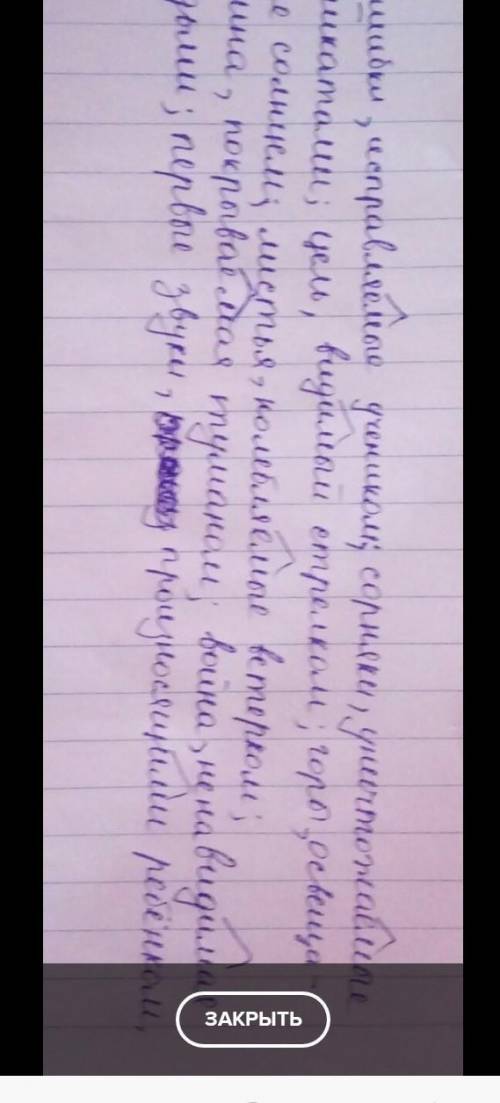 шибки, исправляемые учеником; сорняки, уничтожаемые
икатами; цель, видимый стрелком; горы, освеща-
е солнцем; листья, колебляемые ветерком;
ина, покрываемая туманом; война, ненавидимая
дыми; первые звуки, произносящими ребёнком,
ЗАКРЫТЬ